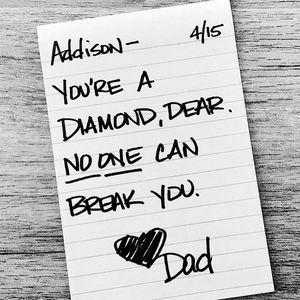 Addison— 4/15
YOU'RE A
DIAMOND, DEAR.
NO ONE CAN
BREAK YOU.
Dad